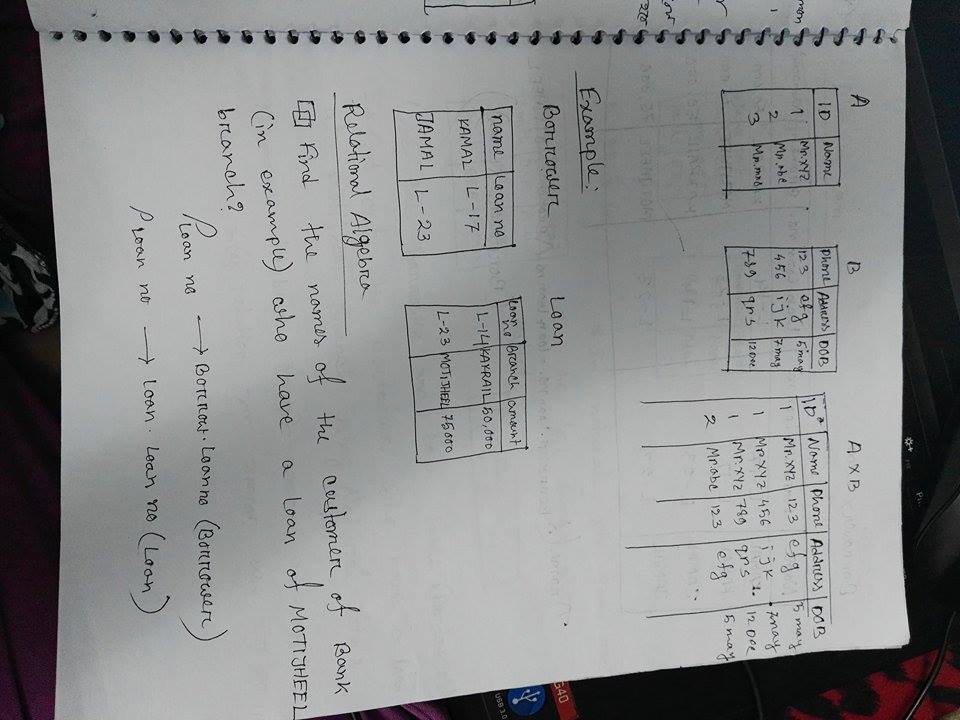 A B A X B
ID Name
1 Mr.XYZ
2 Mr.abc
3 Mr.mno
Phone Address DOB
123 efg 5may
456 ijk 7may
789 qrs 12Dec
ID Name Phone Address DOB
1 Mr.XYZ 123 efg 5 may
1 Mr.XYZ 456 ijk 7may
1 Mr.XYZ 789 qrs 12 Dec
2 Mr.abc 123 efg 5 may
Example:
Borrower Loan
name Loan no
KAMAL L-17
JAMAL L-23
Loan no Branch amount
L-14 KAKRAIL 50,000
L-23 MOTIJHEEL 75000
Relational Algebra
Find the names of the customer of Bank
(in example) who have a loan of MOTIJHEEL
branch?
ρ loan no → Borrow.Loan no (Borrower)
ρ loan no → Loan.Loan no (Loan)
G40
USB 3.0